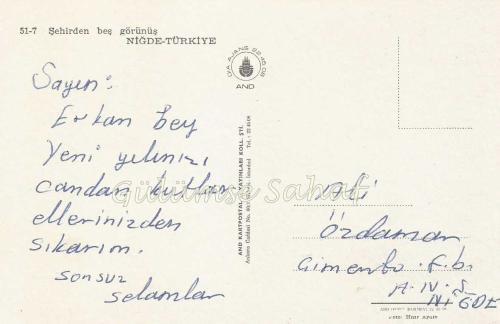 51-7 Şehirden beş görünüş
NİĞDE-TÜRKİYE
Sayın:
Erkan bey
Yeni yılınızı
candan kutlar
ellerinizden
sıkarım.
sonsuz
selamlar
AND
AND KARTPOSTAL YAYINLARI KOLL. ŞTİ.
Gülümse Sahaf
Ali
Özdaman
Çimento . f. b.
NİĞDE